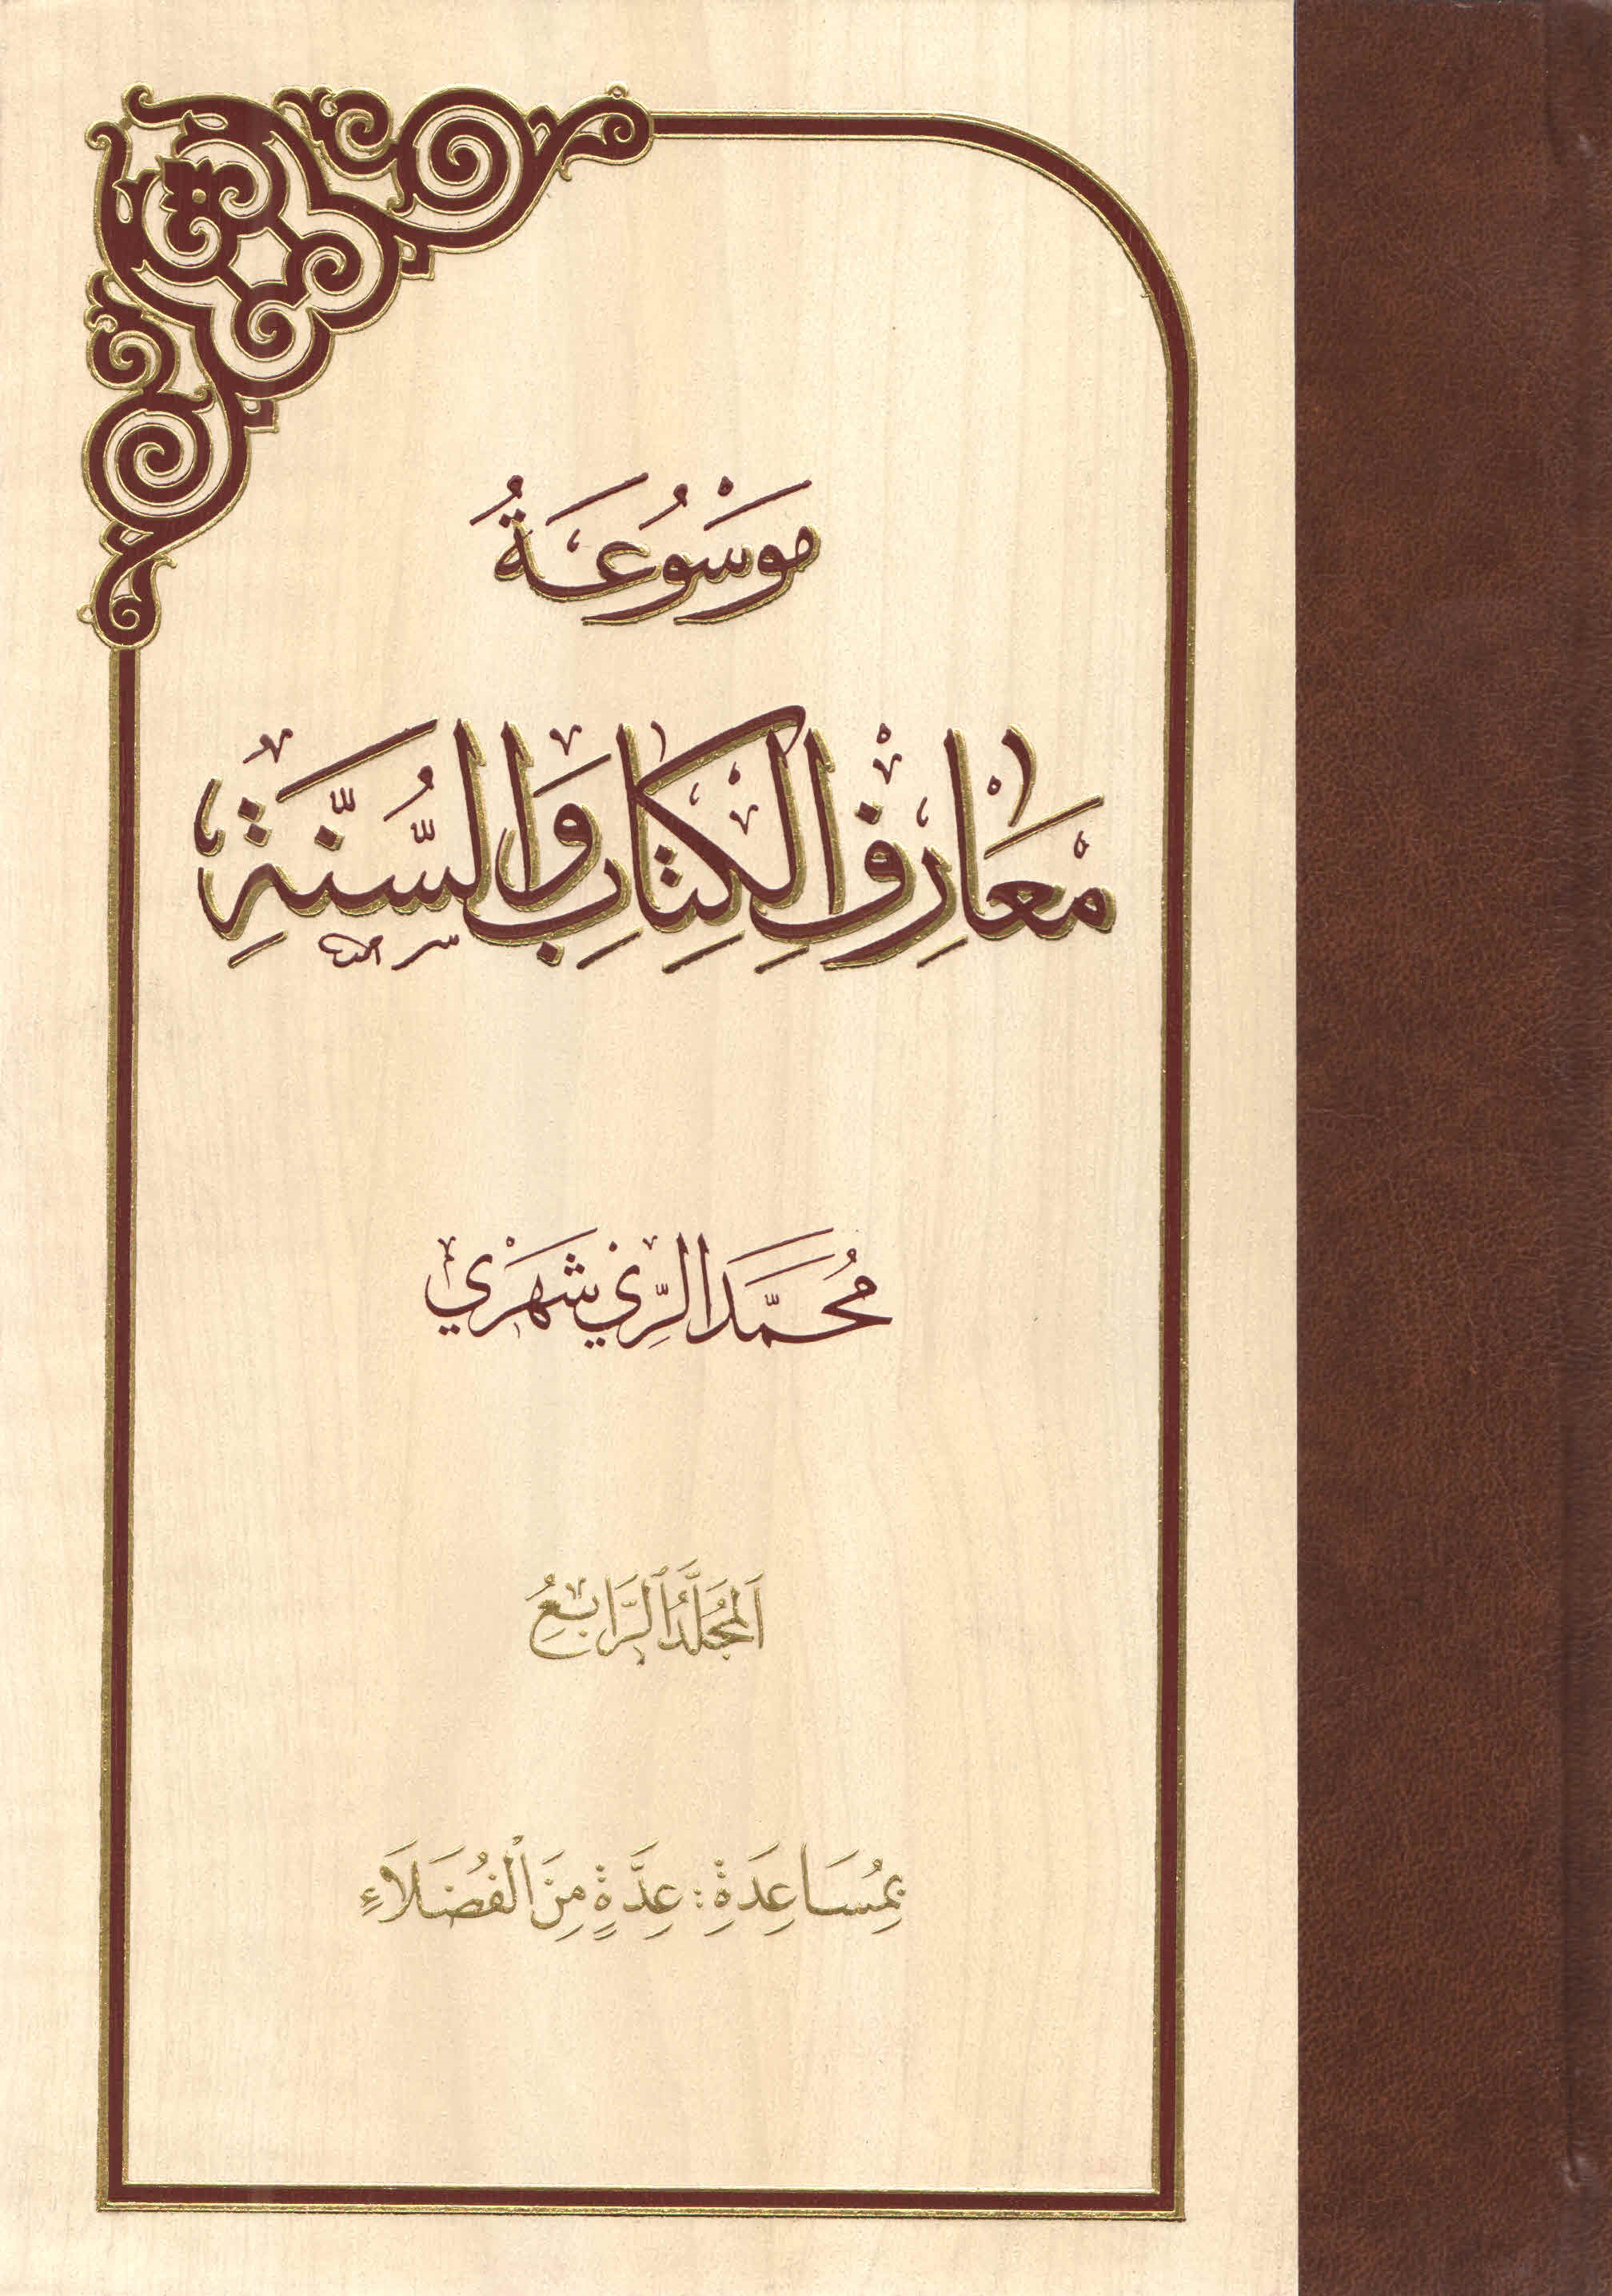 مَوْسُوعَةُ
مَعَارِفِ الْكِتَابِ وَالسُّنَّةِ
مُحَمَّد الرَّيْ شَهْرِي
اَلْمُجَلَّدُ الرَّابِعُ
بِمُسَاعِدَةِ: عِدَّةٍ مِنَ الْفُضَلَاءِ